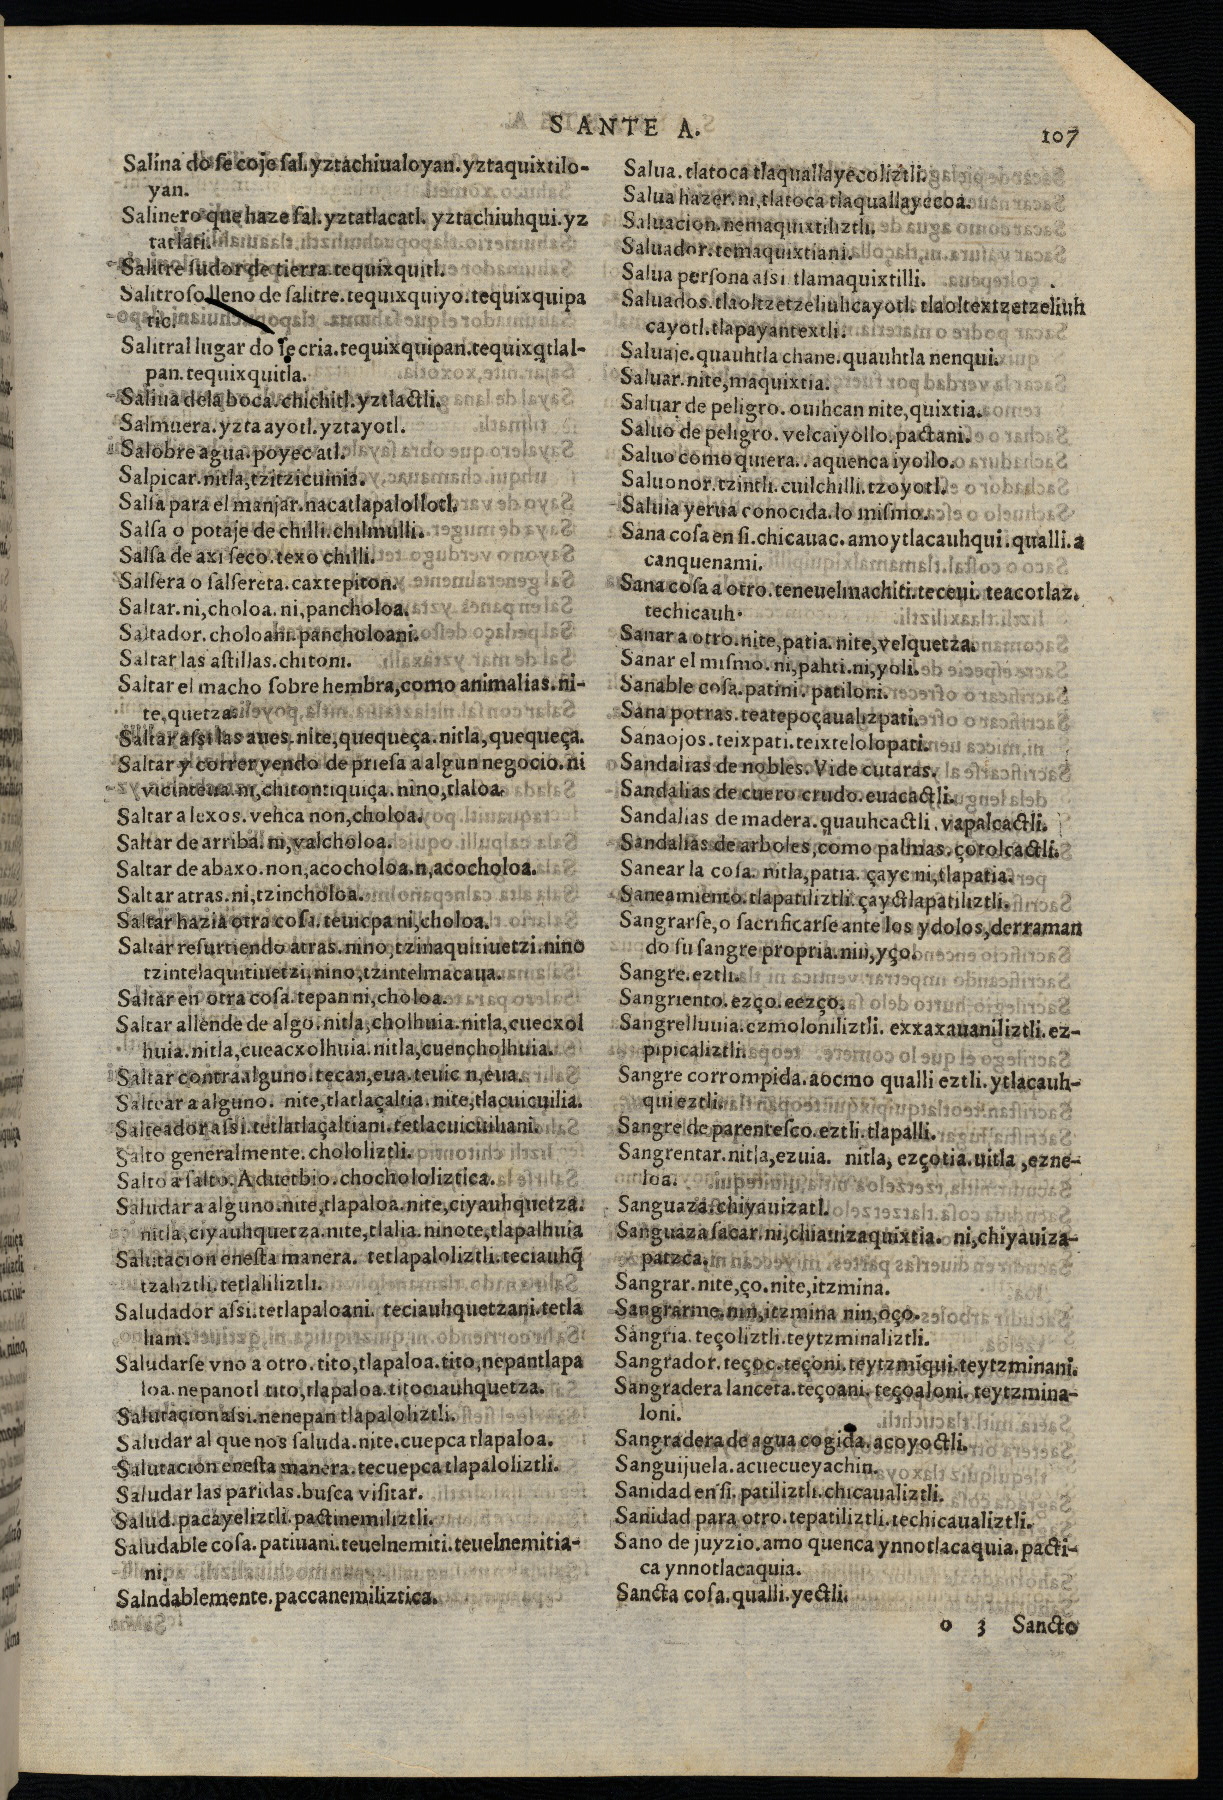 SANTE A.
107
Salina do se coje sal. yztachiualoyan. yztaquixtilo-
yan.
Salinero que haze sal. yztatlacatl. yztachiuhqui. yz
tatlati.
Salitre sudor de tierra. tequixquitl.
Salitroso lleno de salitre. tequixquiyo. tequixquipa
tic.
Salitral lugar do se cria. tequixquipan. tequixq̃tlal-
pan. tequixquitla.
Saliua dela boca. chichitl. yztlactli.
Salmuera. yzta ayotl. yztayotl.
Salobre agua. poyec atl.
Salpicar. nitla, tzitzicuinia.
Salsa para el manjar. nacatlapalollotl.
Salsa o potaje de chilli. chilmulli.
Salsa de axi seco. texo chilli.
Salsera o salsereta. caxtepiton.
Saltar. ni, choloa. ni, pancholoa.
Saltador. choloani. pancholoani.
Saltar las astillas. chitoni.
Saltar el macho sobre hembra, como animalias. ni-
te, quetza.
Saltar assi las aues. nite, quequeça. nitla, quequeça.
Saltar y correr yendo de priesa a algun negocio. ni
vicinteua. ni, chitontiquiça. nino, tlaloa.
Saltar a lexos. vehca non, choloa.
Saltar de arriba. ni, valcholoa.
Saltar de abaxo. non, acocholoa. n, acocholoa.
Saltar atras. ni, tzincholoa.
Saltar hazia otra cosa. teuicpa ni, choloa.
Saltar resurtiendo atras. nino, tzinaquitiuetzi. nino
tzintelaquitiuetzi. nino, tzintelmacaua.
Saltar en otra cosa. tepan ni, choloa.
Saltar allende de algo. nitla, cholhuia. nitla, cuecxol
huia. nitla, cueacxolhuia. nitla, cuencholhuia.
Saltar contra alguno. tecan, eua. teuic n, eua.
Saltear a alguno. nite, tlatlaçaltia. nite, tlacuicuilia.
Salteador assi. tetlatlaçaltiani. tetlacuicuiliani.
Salto generalmente. chololiztli.
Salto a salto. Aduerbio. chochololiztica.
Saludar a alguno. nite, tlapaloa. nite, ciyauhquetza.
nitla, ciyauhquetza. nite, tlalia. ninote, tlapalhuia
Salutacion enesta manera. tetlapaloliztli. teciauhq̃
tzaliztli. tetlaliliztli.
Saludador assi. tetlapaloani. teciauhquetzani. tetla
liani.
Saludarse vno a otro. tito, tlapaloa. tito, nepantlapa
loa. nepanotl tito, tlapaloa. titociauhquetza.
Salutacion assi. nenepan tlapaloliztli.
Saludar al que nos saluda. nite. cuepca tlapaloa.
Salutacion enesta manera. tecuepca tlapaloliztli.
Saludar las paridas. busca visitar.
Salud. pacayeliztli. pactinemiliztli.
Saludable cosa. patiuani. teuelnemiti. teuelnemitia-
ni.
Salndablemente. paccanemiliztica.
Salua. tlatoca tlaquallayecoliztli.
Salua hazer. ni, tlatoca tlaquallayecoa.
Saluacion. nemaquixtiliztli.
Saluador. temaquixtiani.
Salua persona assi. tlamaquixtilli.
Saluados. tlaoltzetzeliuhcayotl. tlaoltextzetzeliuh
cayotl. tlapayantextli.
Saluaje. quauhtla chane. quauhtla nenqui.
Saluar. nite, maquixtia.
Saluar de peligro. ouihcan nite, quixtia.
Saluo de peligro. velcaiyollo. pactani.
Saluo como quiera.. aquenca iyollo.
Saluonor. tzintli. cuilchilli. tzoyotl.
Saluia yerua conocida. lo mismo.
Sana cosa en si. chicauac. amo ytlacauhqui. qualli. a
canquenami.
Sana cosa a otro. teneuelmachiti. teceui. teacotlaz.
techicauh.
Sanar a otro. nite, patia. nite, velquetza.
Sanar el mismo. ni, pahti. ni, yoli.
Sanable cosa. patini. patiloni.
Sana potras. teatepoçauahzpati.
Sanaojos. teixpati. teixtelolopati.
Sandalias de nobles. Vide cutaras.
Sandalias de cuero crudo. euacactli.
Sandalias de madera. quauhcactli. vapalcactli.
Sandalias de arboles, como palmas. çotolcactli.
Sanear la cosa. nitla, patia. çayc ni, tlapatia.
Saneamiento. tlapatiliztli. çayctlapatiliztli.
Sangrarse, o sacrificarse ante los ydolos, derraman
do su sangre propria. nin, yço.
Sangre. eztli.
Sangriento. ezço. eezço.
Sangrelluuia. ezmoloniliztli. exxaxauaniliztli. ez-
pipicaliztli.
Sangre corrompida. aocmo qualli eztli. ytlacauh-
qui eztli.
Sangre de parentesco. eztli. tlapalli.
Sangrentar. nitla, ezuia. nitla, ezçotia. uitla, ezne-
loa.
Sanguaza. chiyauizatl.
Sanguaza sacar. ni, chiauizaquixtia. ni, chiyauiza-
patzca.
Sangrar. nite, ço. nite, itzmina.
Sangrarme. nin, itzmina nin, oço.
Sangria. teçoliztli. teytzminaliztli.
Sangrador. teçoc. teçoni. teytzmiqui. teytzminani.
Sangradera lanceta. teçoani. teçoaloni. teytzmina-
loni.
Sangradera de agua cogida. acoyoctli.
Sanguijuela. acuecueyachin.
Sanidad en si. patiliztli. chicaualiztli.
Sanidad para otro. tepatiliztli. techicaualiztli.
Sano de juyzio. amo quenca ynnotlacaquia. pacti-
ca ynnotlacaquia.
Sancta cosa. qualli. yectli.
o 3 Sancto